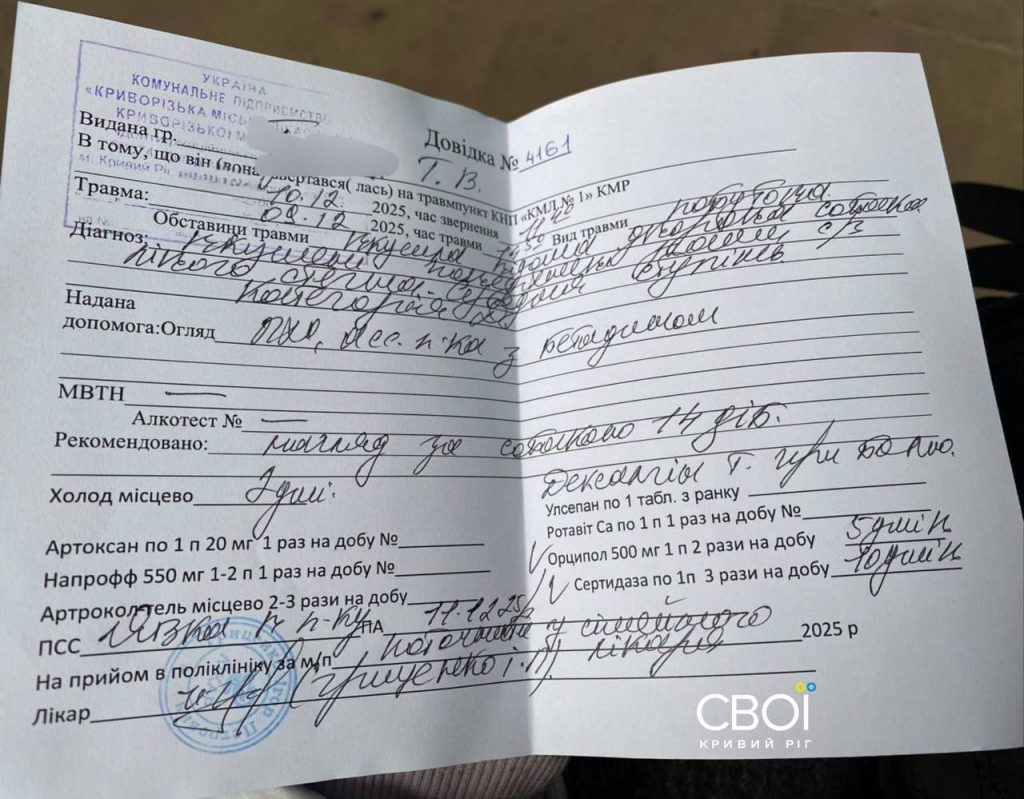 УКРАЇНА
КОМУНАЛЬНЕ ПІДПРИЄМСТВО
«КРИВОРІЗЬКА МІСЬКА
КРИВОРІЗЬКОЇ
м. Кривий Ріг
Довідка № 4161
Видана гр. Т. В.
В тому, що він (вона) звертався( лась) на травмпункт КНП «КМЛ № 1» КМР
Травма: 10.12 2025, час звернення 11 40
09.12 2025, час травми Вид травми побутова
Обставини травми вкусила відома дворова собака
Діагноз: Вкушені рани с/з
лівого стегна. Середній ступінь.
Категорія
Надана
допомога:Огляд ПХО, ас. п-ка з бетадином
МВТН —
Алкотест № —
Рекомендовано: нагляд за собакою 14 діб.
Дексалгін т. при болю.
Холод місцево 3 дні.
Улсепан по 1 табл. з ранку
Ротавіт Са по 1 п 1 раз на добу №
Артоксан по 1 п 20 мг 1 раз на добу №
Орципол 500 мг 1 п 2 рази на добу 5 днів
Напрофф 550 мг 1-2 п 1 раз на добу №
Сертидаза по 1п 3 рази на добу 10 днів
Артроколтель місцево 2-3 рази на добу
ПСС ПА 11.12.25р
На прийом в поліклініку за м/п у сімейного лікаря 2025 р
Лікар (Грищенко І.П).
СВОЇ
КРИВИЙ РІГ